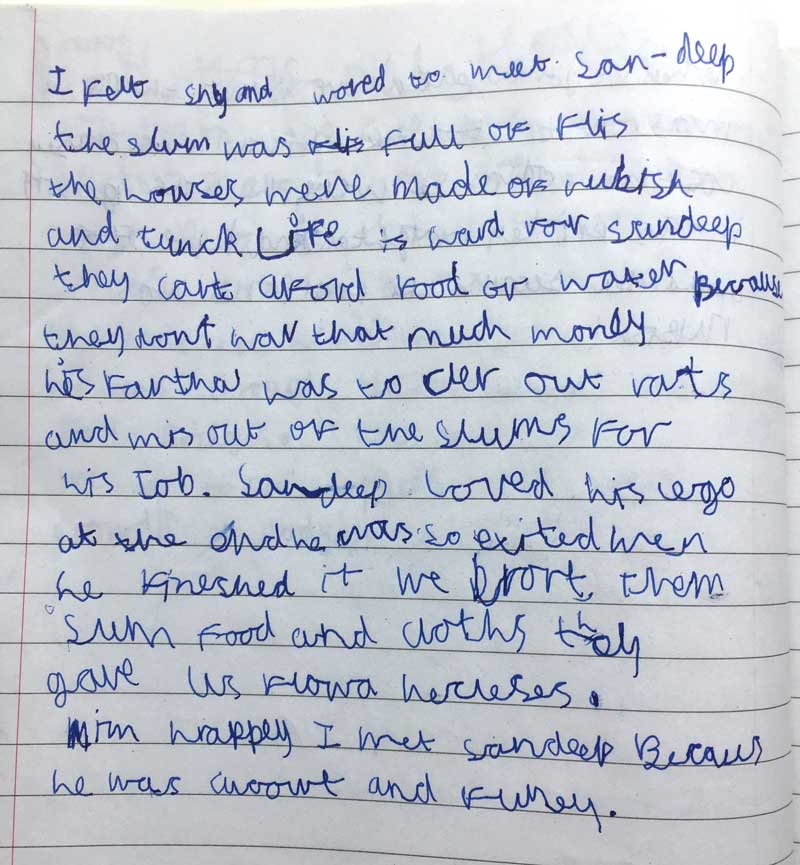 I Felt shy and wored to meet San-deep
the slum was flis Full OF Flis
the howses were made OF rubish
and tunck Life is hard for Sandeep
they cart aford Food or water Because
they dont hav that much money
his Fartha was to cler out rats
and mis out of the slums For
his Iob. Sandeep Loved his lego
at the end he was so exited wen
he Fineshed it we brort them
Sum Food and cloths they
gave us Flowa necleses.
im happey I met Sandeep Becaus
he was and Funey.